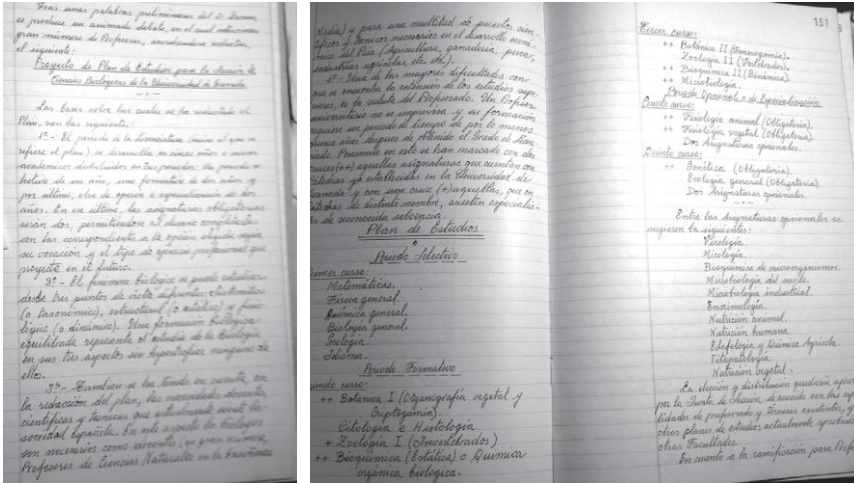 Tras unas palabras preliminares del D.
se produce un animado debate, en el cual intervienen
gran número de Profesores, acordándose redactar,
el siguiente:
Proyecto de Plan de Estudios para la Sección de
Ciencias Biológicas de la Universidad de Granada
Las bases sobre las cuales se ha redactado el
Plan, son las siguientes:
1ª- El periodo de la Licenciatura (único al que se
refiere el plan) se desarrolla en cinco años o cursos
académicos distribuidos en tres periodos: Un periodo se-
lectivo de un año, uno formativo de dos años y
por último, otro de opción o especialización de dos
años. En este último, las asignaturas obligatorias
serán dos, permitiéndose al alumno completarlas
con las correspondientes a la opción elegida según
su vocación y el tipo de ejercicio profesional que
proyecte en el futuro.
2ª- El fenómeno biológico se puede estudiar
desde tres puntos de vista diferentes: sistemático
(o taxonómico), estructural (o estático) y fisio-
lógico (o dinámico). Una formación biológica
equilibrada representa el estudio de la Biología
en sus tres aspectos sin hipertrofiar ninguno de
ellos.
3ª- También se ha tenido en cuenta, en
la redacción del plan, las necesidades docentes,
científicas y técnicas que actualmente siente la
sociedad española. En este aspecto los biólogos
son necesarios como docentes (en gran número,
Profesores de Ciencias Naturales en la Enseñanza
Media) y para una multitud de puestos cien-
tíficos y técnicos necesarios en el desarrollo econó-
mico del País (Agricultura, ganadería, pesca,
industrias agrícolas, etc. etc.).
4ª- Una de las mayores dificultades con
que se enfrenta la extensión de los estudios supe-
riores, es la del Profesorado. Un Profesor
universitario no se improvisa y su formación
requiere un periodo de tiempo de por lo menos
años después de obtenido el Grado de Licen-
ciado. Pensando en esto se han marcado con dos
cruces (++) aquellas asignaturas que cuentan con
Cátedras ya establecidas en la Universidad de
Granada y con una cruz (+) aquellas, que en
Cátedras de distinto nombre, existen especialis-
tas de reconocida solvencia.
Plan de Estudios
Periodo Selectivo
Primer curso:
Matemáticas.
Física general.
Química general.
Biología general.
Geología.
Idioma.
Periodo Formativo
Segundo curso:
++ Botánica I (Organografía vegetal y
Criptogamia).
Citología e Histología
+ Zoología I (Invertebrados)
++ Bioquímica (Estática) o Química
orgánica biológica.
151
Tercer curso:
++ Botánica II (Fanerogamia).
Zoología II (Vertebrados).
++ Bioquímica II (Dinámica).
++ Microbiología.
Periodo Opcional o de Especialización
Cuarto curso:
++ Fisiología animal (Obligatoria).
++ Fisiología vegetal (Obligatoria).
Dos Asignaturas opcionales.
Quinto curso:
++ Genética (Obligatoria).
Ecología general (Obligatoria).
Dos Asignaturas opcionales.
Entre las Asignaturas opcionales se
sugieren las siguientes:
Virología.
Micología.
Bioquímica de microorganismos.
Microbiología del suelo.
Microbiología industrial.
Enzimología.
Nutrición animal.
Nutrición humana
Edafología y Química Agrícola.
Fitopatología.
Nutrición vegetal.
La elección y distribución quedaría
por la Junta de Sección, de acuerdo con las
de profesorado y Técnicas existentes, y
otros planes de estudios actualmente
otras Facultades.
En cuanto a la ramificación para